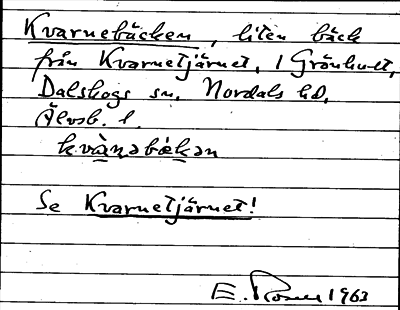 Kvarnebäcken, liten bäck
från Kvarnetjärnet, i Grönhult,
Dalskogs sn, Nordals hd,
Älvsb. l.
kvànəbækən
Se Kvarnetjärnet!
E. Rosell 1963